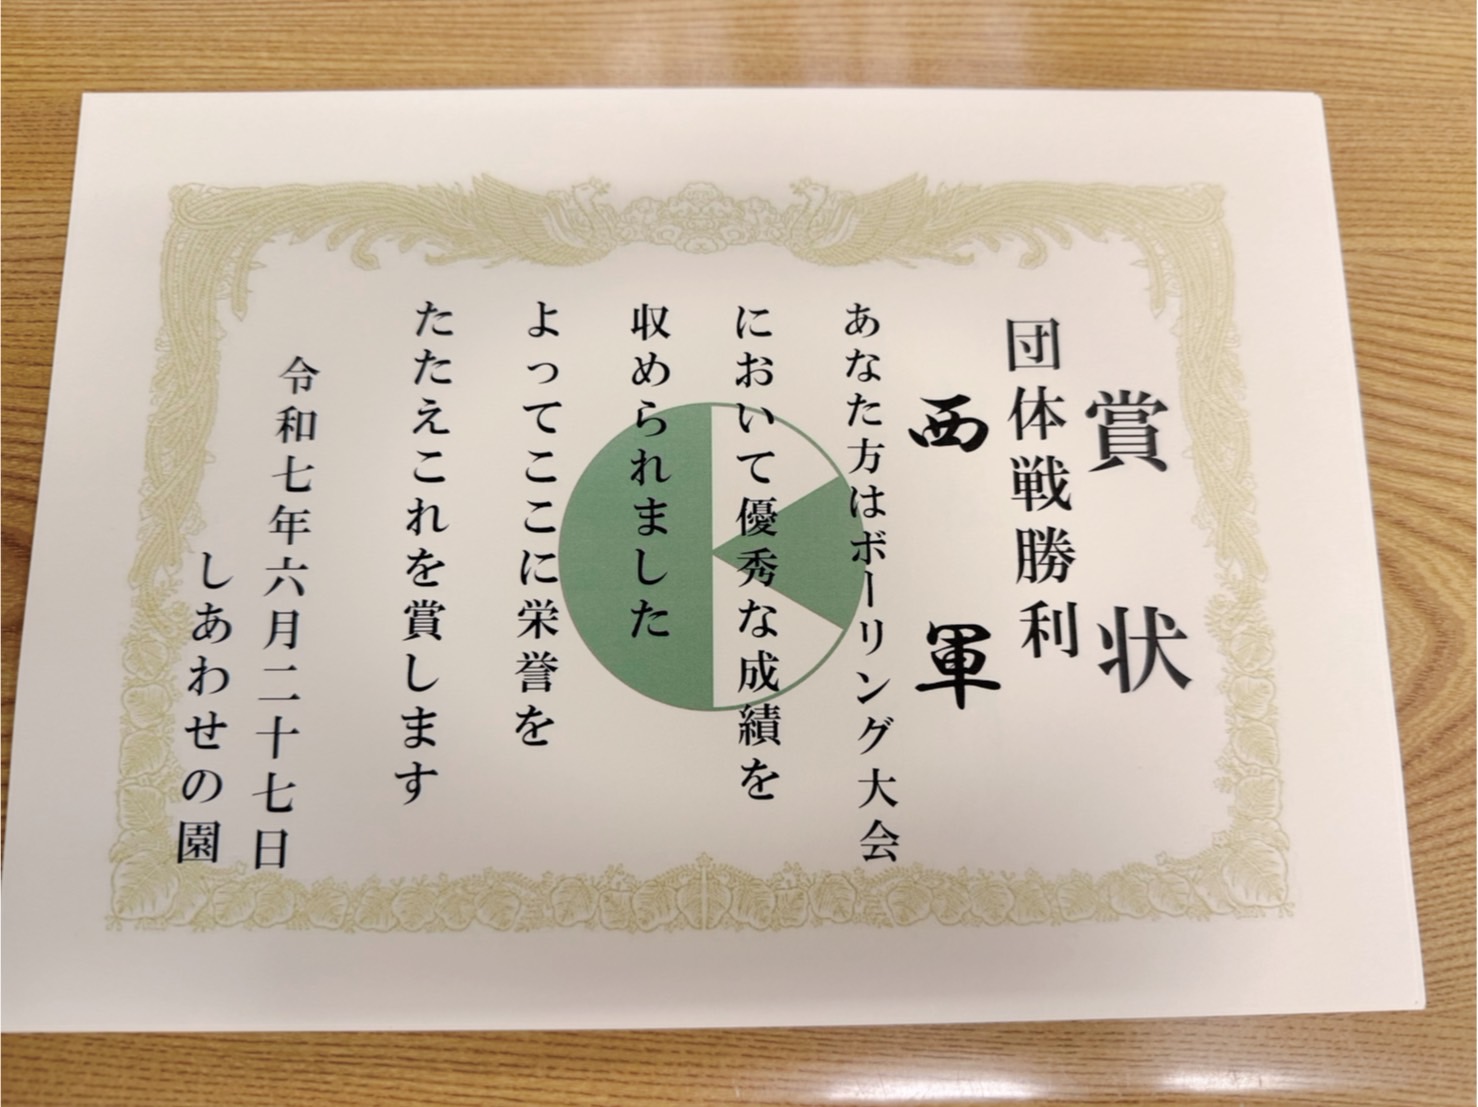 賞状
団体戦勝利
西軍
あなた方はボーリング大会
において優秀な成績を
収められました
よってここに栄誉を
たたえこれを賞します
令和七年六月二十七日
しあわせの園